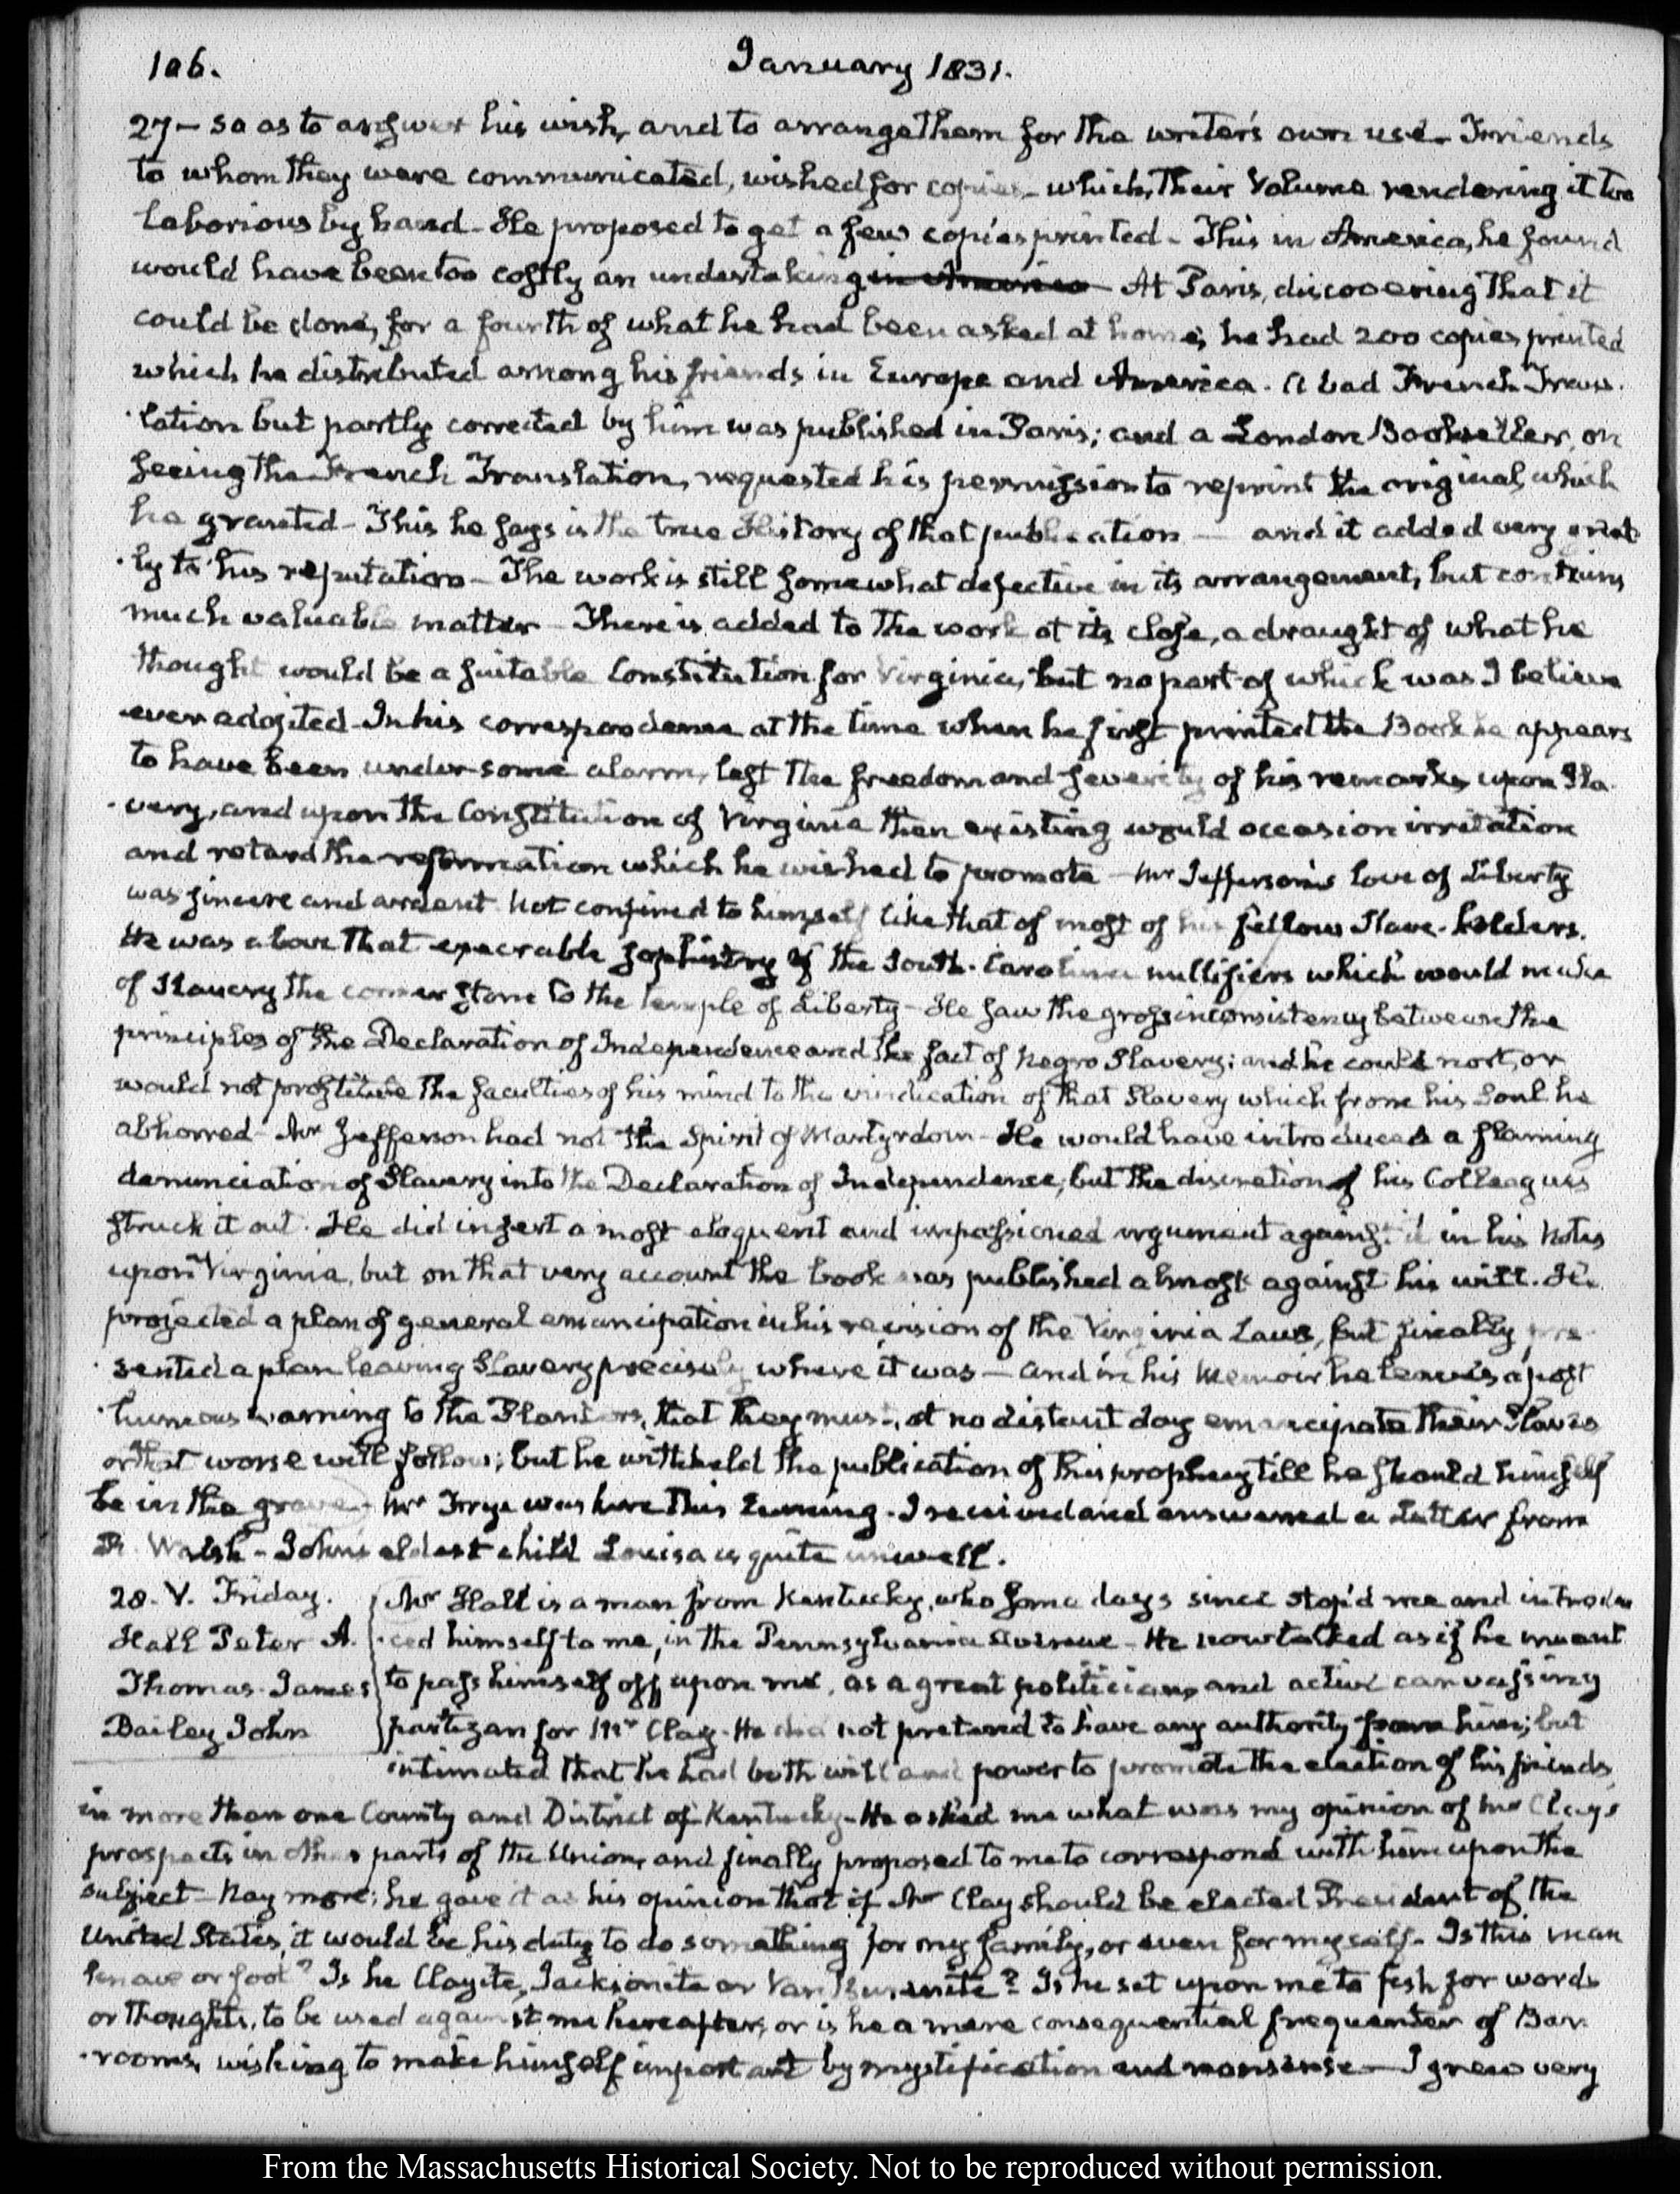 106.
January 1831.
27 - so as to answer his wish, and to arrange them for the writer's own use - Friends
to whom they were communicated, wished for copies - which, their Volume rendering it too
laborious by hand - He proposed to get a few copies printed - This in America, he found
would have been too costly an undertaking in America - At Paris, discovering that it
could be done, for a fourth of what he had been asked at home, he had 200 copies printed
which he distributed among his friends in Europe and America. A bad French Trans-
lation but partly corrected by him was published in Paris; and a London Bookseller, on
seeing the French Translation, requested his permission to reprint the original, which
he granted - This he says is the true History of that publication - and it added very great-
ly to his reputation - The work is still somewhat defective in its arrangement, but contains
much valuable matter - There is added to the work at its close, a draught of what he
thought would be a suitable Constitution for Virginia, but no part of which was I believe
ever adopted - In his correspondence at the time when he first printed the Book he appears
to have been under some alarm, lest the freedom and severity of his remarks upon Sla-
very, and upon the Constitution of Virginia then existing would occasion irritation
and retard the reformation which he wished to promote - Mr Jefferson's love of Liberty
was sincere and ardent - not confined to himself like that of most of his fellow Slave-holders.
He was above that execrable sophistry of the South-Carolina nullifiers which would make
of Slavery the corner stone to the temple of Liberty - He saw the gross inconsistency between the
principles of the Declaration of Independence and the fact of Negro Slavery; and he could not, or
would not prostitute the faculties of his mind to the vindication of that Slavery which from his Soul he
abhorred - Mr Jefferson had not the Spirit of Martyrdom - He would have introduced a flaming
denunciation of Slavery into the Declaration of Independence, but the discretion of his Colleagues
struck it out. He did insert a most eloquent and impassioned argument against it in his Notes
upon Virginia, but on that very account the book was published almost against his will. He
projected a plan of general emancipation in his revision of the Virginia Laws, but finally pre-
sented a plan leaving Slavery precisely where it was - and in his Memoir he leaves a post-
humous warning to the Planters, that they must, at no distant day emancipate their Slaves
or that worse will follow; but he withheld the publication of this prophecy till he should himself
be in the grave - Mr Frye was here this Evening - I received and answered a Letter from
R. Walsh - John's eldest child Louisa is quite unwell.
28. V. Friday.
Hall Peter A.
Thomas James
Bailey John
Mr Hall is a man from Kentucky, who some days since stop'd me and introdu-
ced himself to me, in the Pennsylvania Avenue - He now talked as if he meant
to pass himself off upon me, as a great politician, and active canvassing
partizan for Mr Clay - He did not pretend to have any authority from him; but
intimated that he had both will and power to promote the election of his friends,
in more than one County and District of Kentucky - He asked me what was my opinion of Mr Clay's
prospects in other parts of the Union, and finally proposed to me to correspond with him upon the
subject - Nay more; he gave it as his opinion that if Mr Clay should be elected President of the
United States, it would be his duty to do something for my family, or even for myself - Is this man
knave or fool? Is he Clayite, Jacksonite or Van Burenite? Is he set upon me to fish for words
or thoughts, to be used against me hereafter, or is he a mere consequential frequenter of Bar-
rooms, wishing to make himself important by mystification and nonsense - I grew very
From the Massachusetts Historical Society. Not to be reproduced without permission.